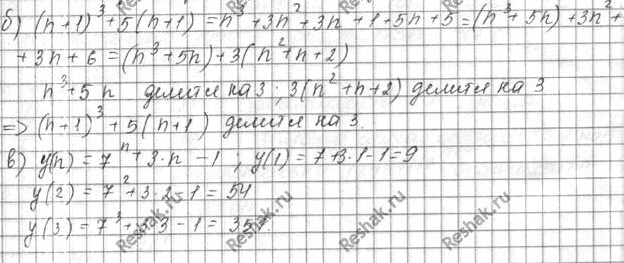 б) (n+1)³+5(n+1) = n³+3n²+3n+1+5n+5=(n³+5n)+3n²+
+3n+6=(n³+5n)+3(n²+n+2)
n³+5n делится на 3; 3(n²+n+2) делится на 3
=> (n+1)³+5(n+1) делится на 3.
в) y(n) = 7ⁿ+3·n-1; y(1)=7+3·1-1=9
y(2)=7²+3·2-1=54
y(3)=7³+3·3-1=351
Reshak.ru
Reshak.ru
Reshak.ru
Reshak.ru
Reshak.ru
Reshak.ru